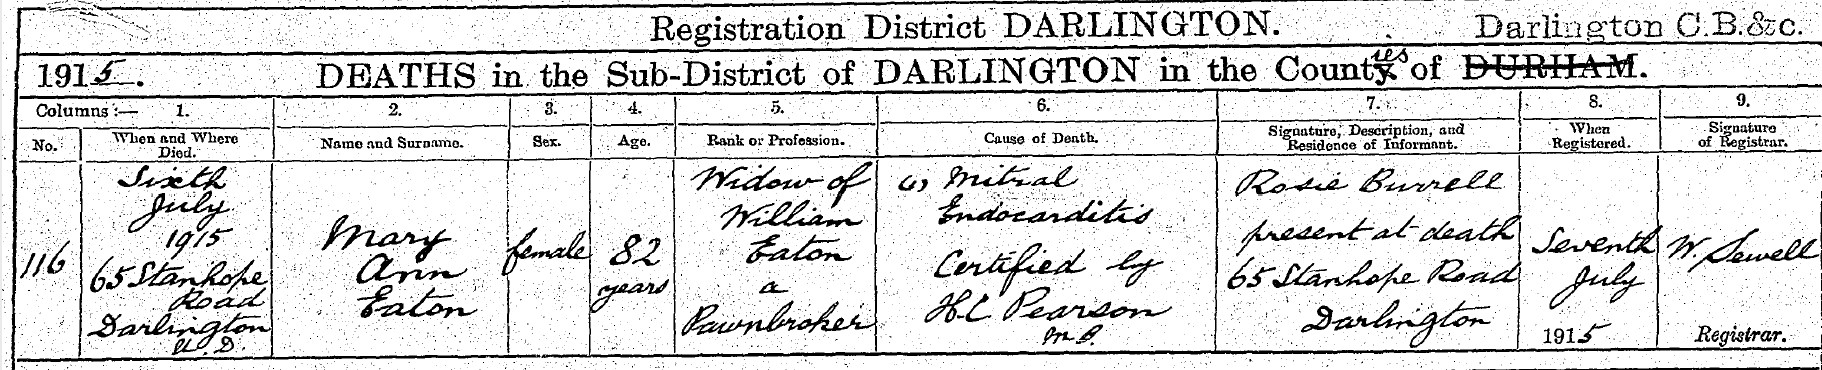 Registration District DARLINGTON. Darlington C.B.&c.
1915. DEATHS in the Sub-District of DARLINGTON in the Counties of DURHAM.
Columns :— 1. 2. 3. 4. 5. 6. 7. 8. 9.
No. When and Where Died. Name and Surname. Sex. Age. Rank or Profession. Cause of Death. Signature, Description, and Residence of Informant. When Registered. Signature of Registrar.
116
Sixth
July
1915
65 Stanhope
Road
Darlington
U.D.
Mary
Ann
Eaton
female
82
years
Widow of
William
Eaton
a
Pawnbroker
(1) Mitral
Endocarditis
Certified by
H.C Pearson
M.B.
Rosie Burrell
present at death
65 Stanhope Road
Darlington
Seventh
July
1915
W. Sewell
Registrar.